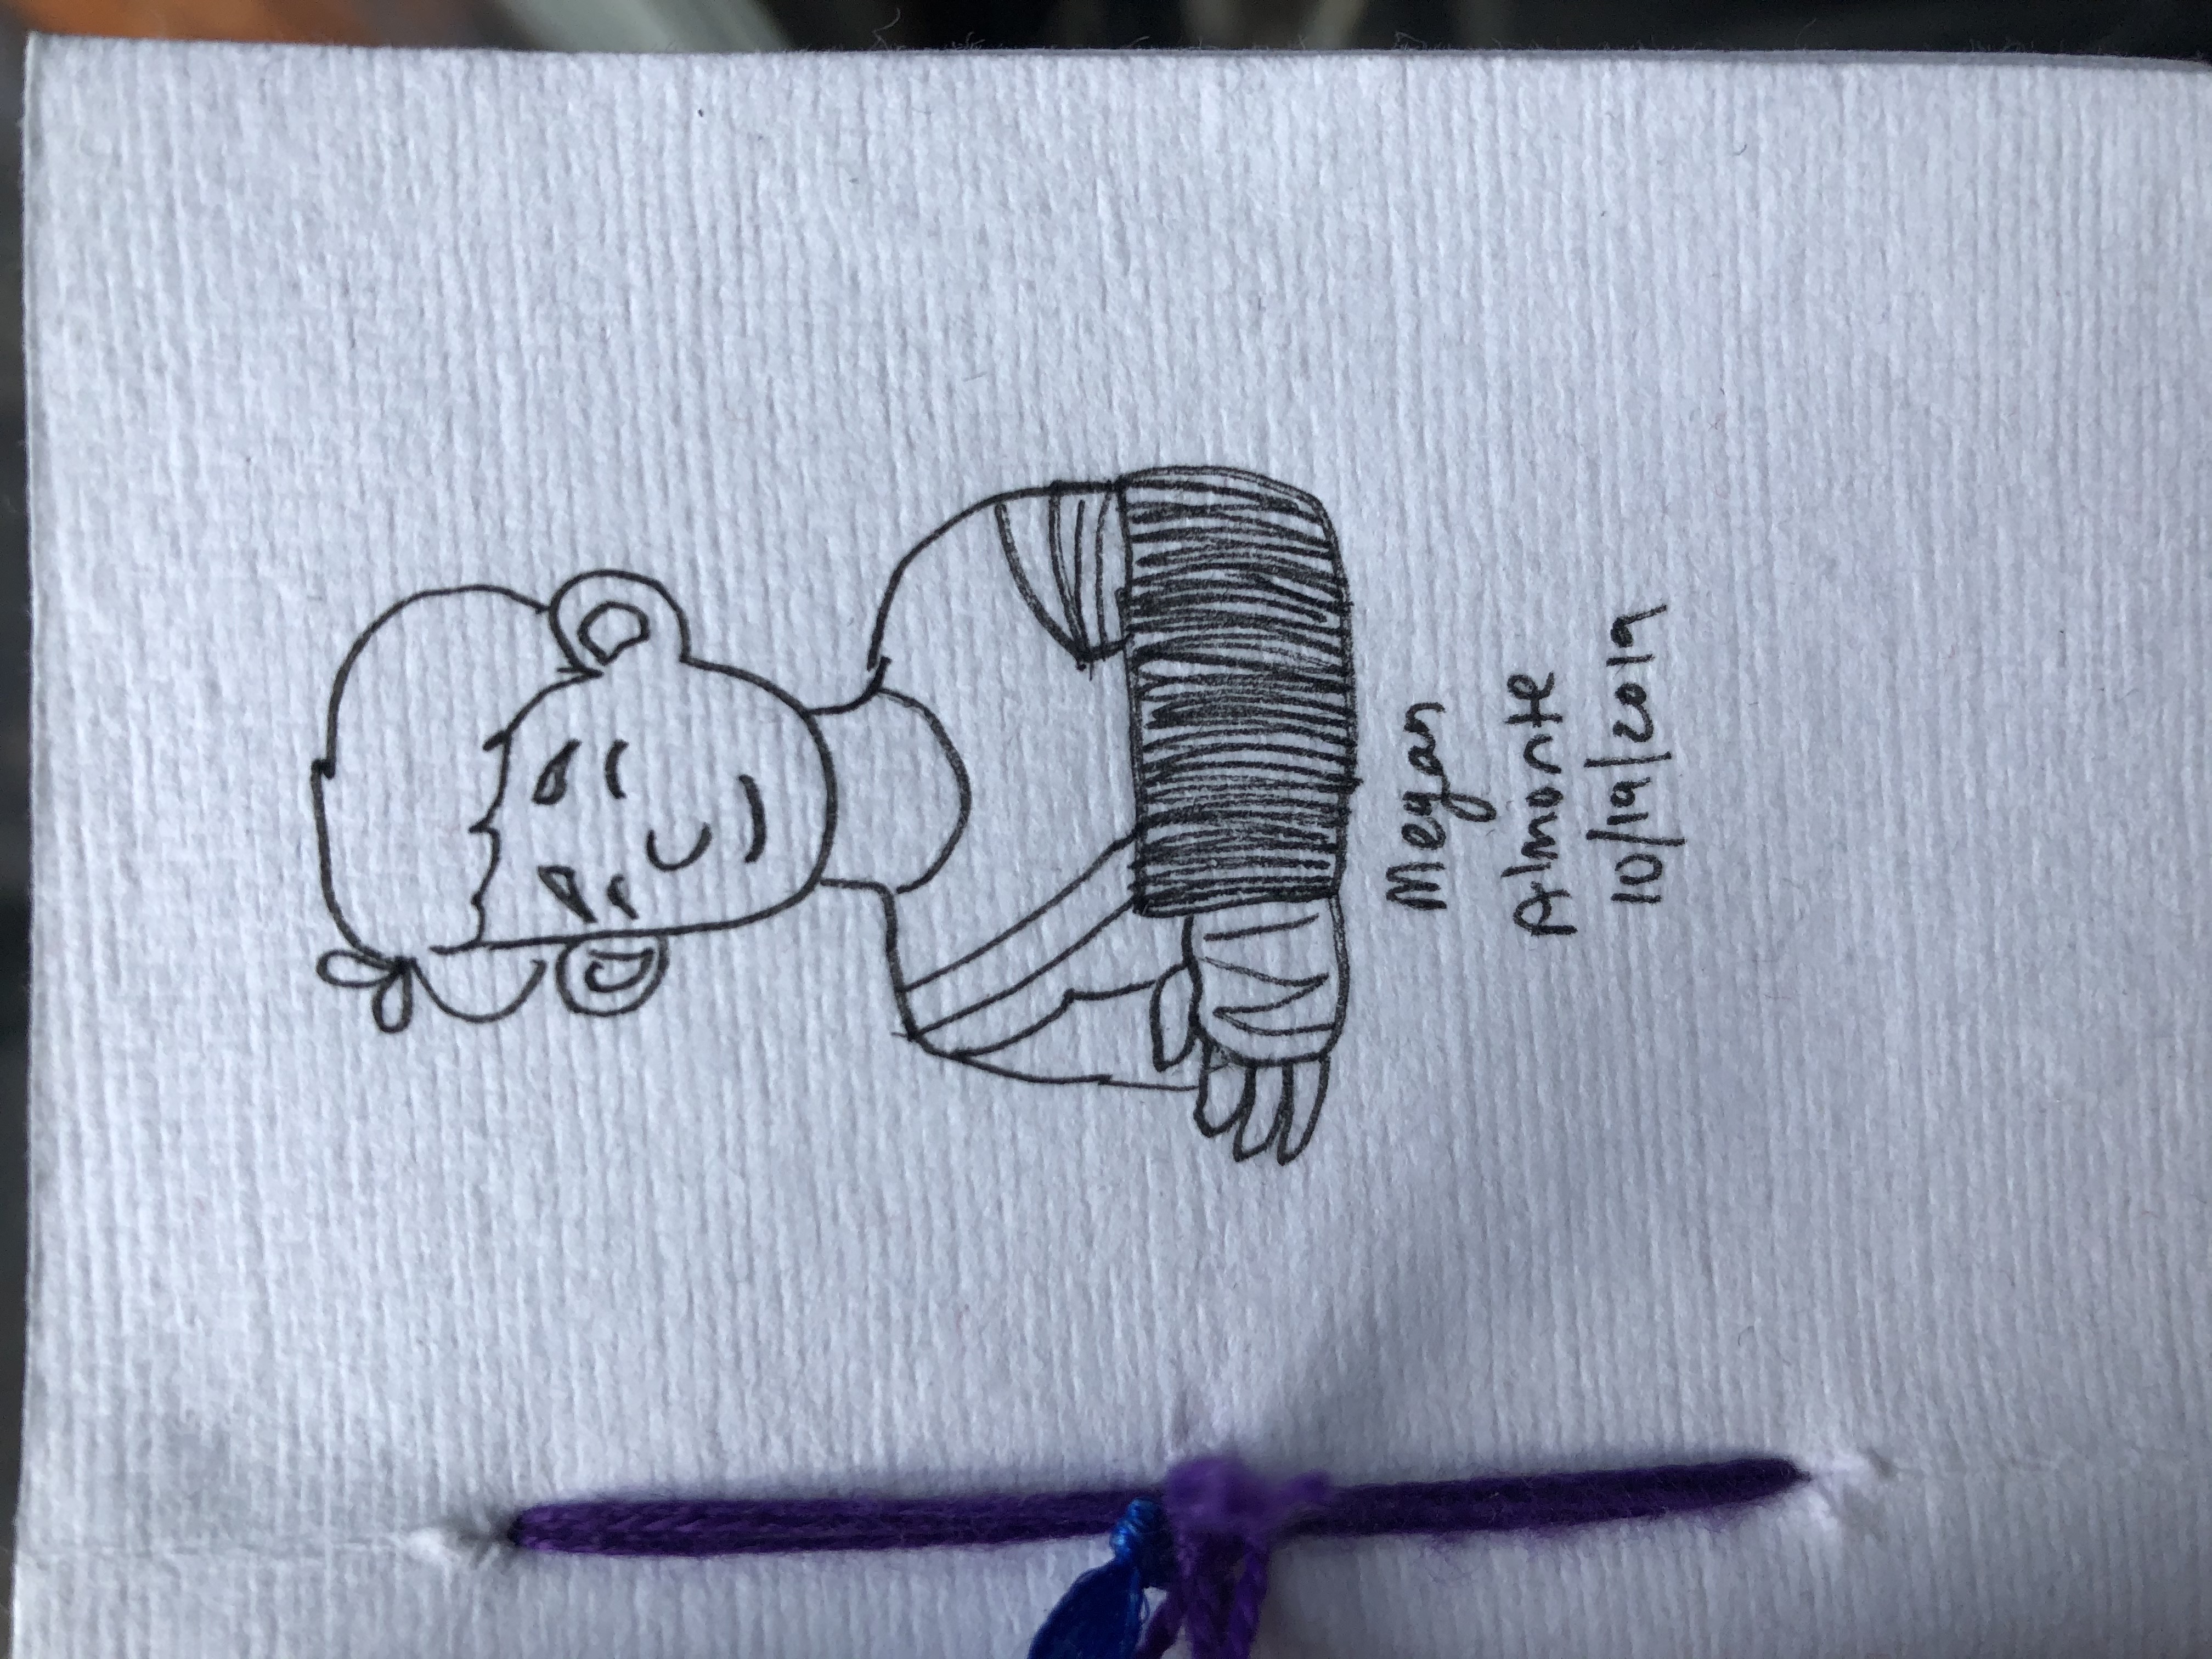 Megan
Almonte
10/19/2019